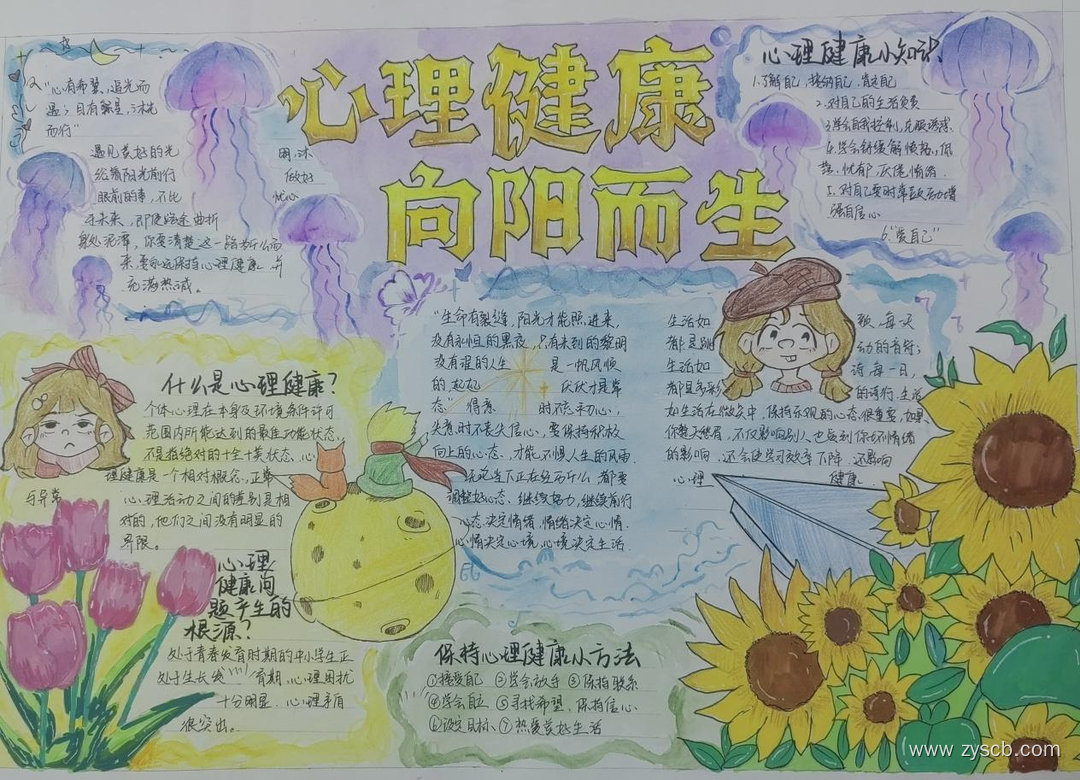 心理健康
向阳而生
"心有希冀,追光而
遇;目有繁星,沐光
而行"
遇见美好的光
沐
给腾阳光前行
做好
眼前的事,不比
忧心
于未来,即使路途曲折
身处泥潭,你要清楚这一路所公而
来,要永远保持心理健康,并
充满热诚。
心理健康小知识
1.了解自己、接纳自己、肯定自己
2.对自己的生活负责
3.学会自我控制,克服诱惑.
4.学会舒缓解愤怒、低
落、忧郁、厌倦情绪.
5.对自己要时常鼓励增
强自信心
6."爱自己"
"生命有裂缝,阳光才能照进来,
没有永恒的黑夜,只有未到的黎明
没有谁的人生 是一帆风顺
的 起起 伏伏才是常
态" 得意 时不忘初心,
失意时不丧失信心,要保持积极
向上的心态,才能不惧人生的风雨.
无论当下正在经历什么,都要
调整好心态、继续努力,继续前行
心态决定情绪,情绪决定心情.
心情决定心境,心境决定生活
生活如 歌,每一天
都是跳 动的音符;
生活如 诗,每一日,
都是多彩 的诗行.生活
如生活在微笑中,保持乐观的心态很重要,如果
你整天愁眉,不仅影响别人也受到你的坏情绪
的影响,还会使学习效率下降,还影响
心理 健康
什么是心理健康?
个体心理在本身及环境条件许可
范围内所能达到的最佳功能状态,
不是指绝对的十全十美状态,心
理健康是一个相对概念,正常
与异常 心理活动之间的差别是相
对的,他们之间没有明显的
界限。
心理
健康问
题产生的
根源?
处于青春发育时期的中小学生正
处于生长发育期,心理困扰
十分明显,心理矛盾
很突出。
保持心理健康小方法
①接受自己 ②学会放手 ③保持联系
④学会自立 ⑤寻找希望、保持信心
⑥设定目标 ⑦热爱美好生活
www.zyscb.com